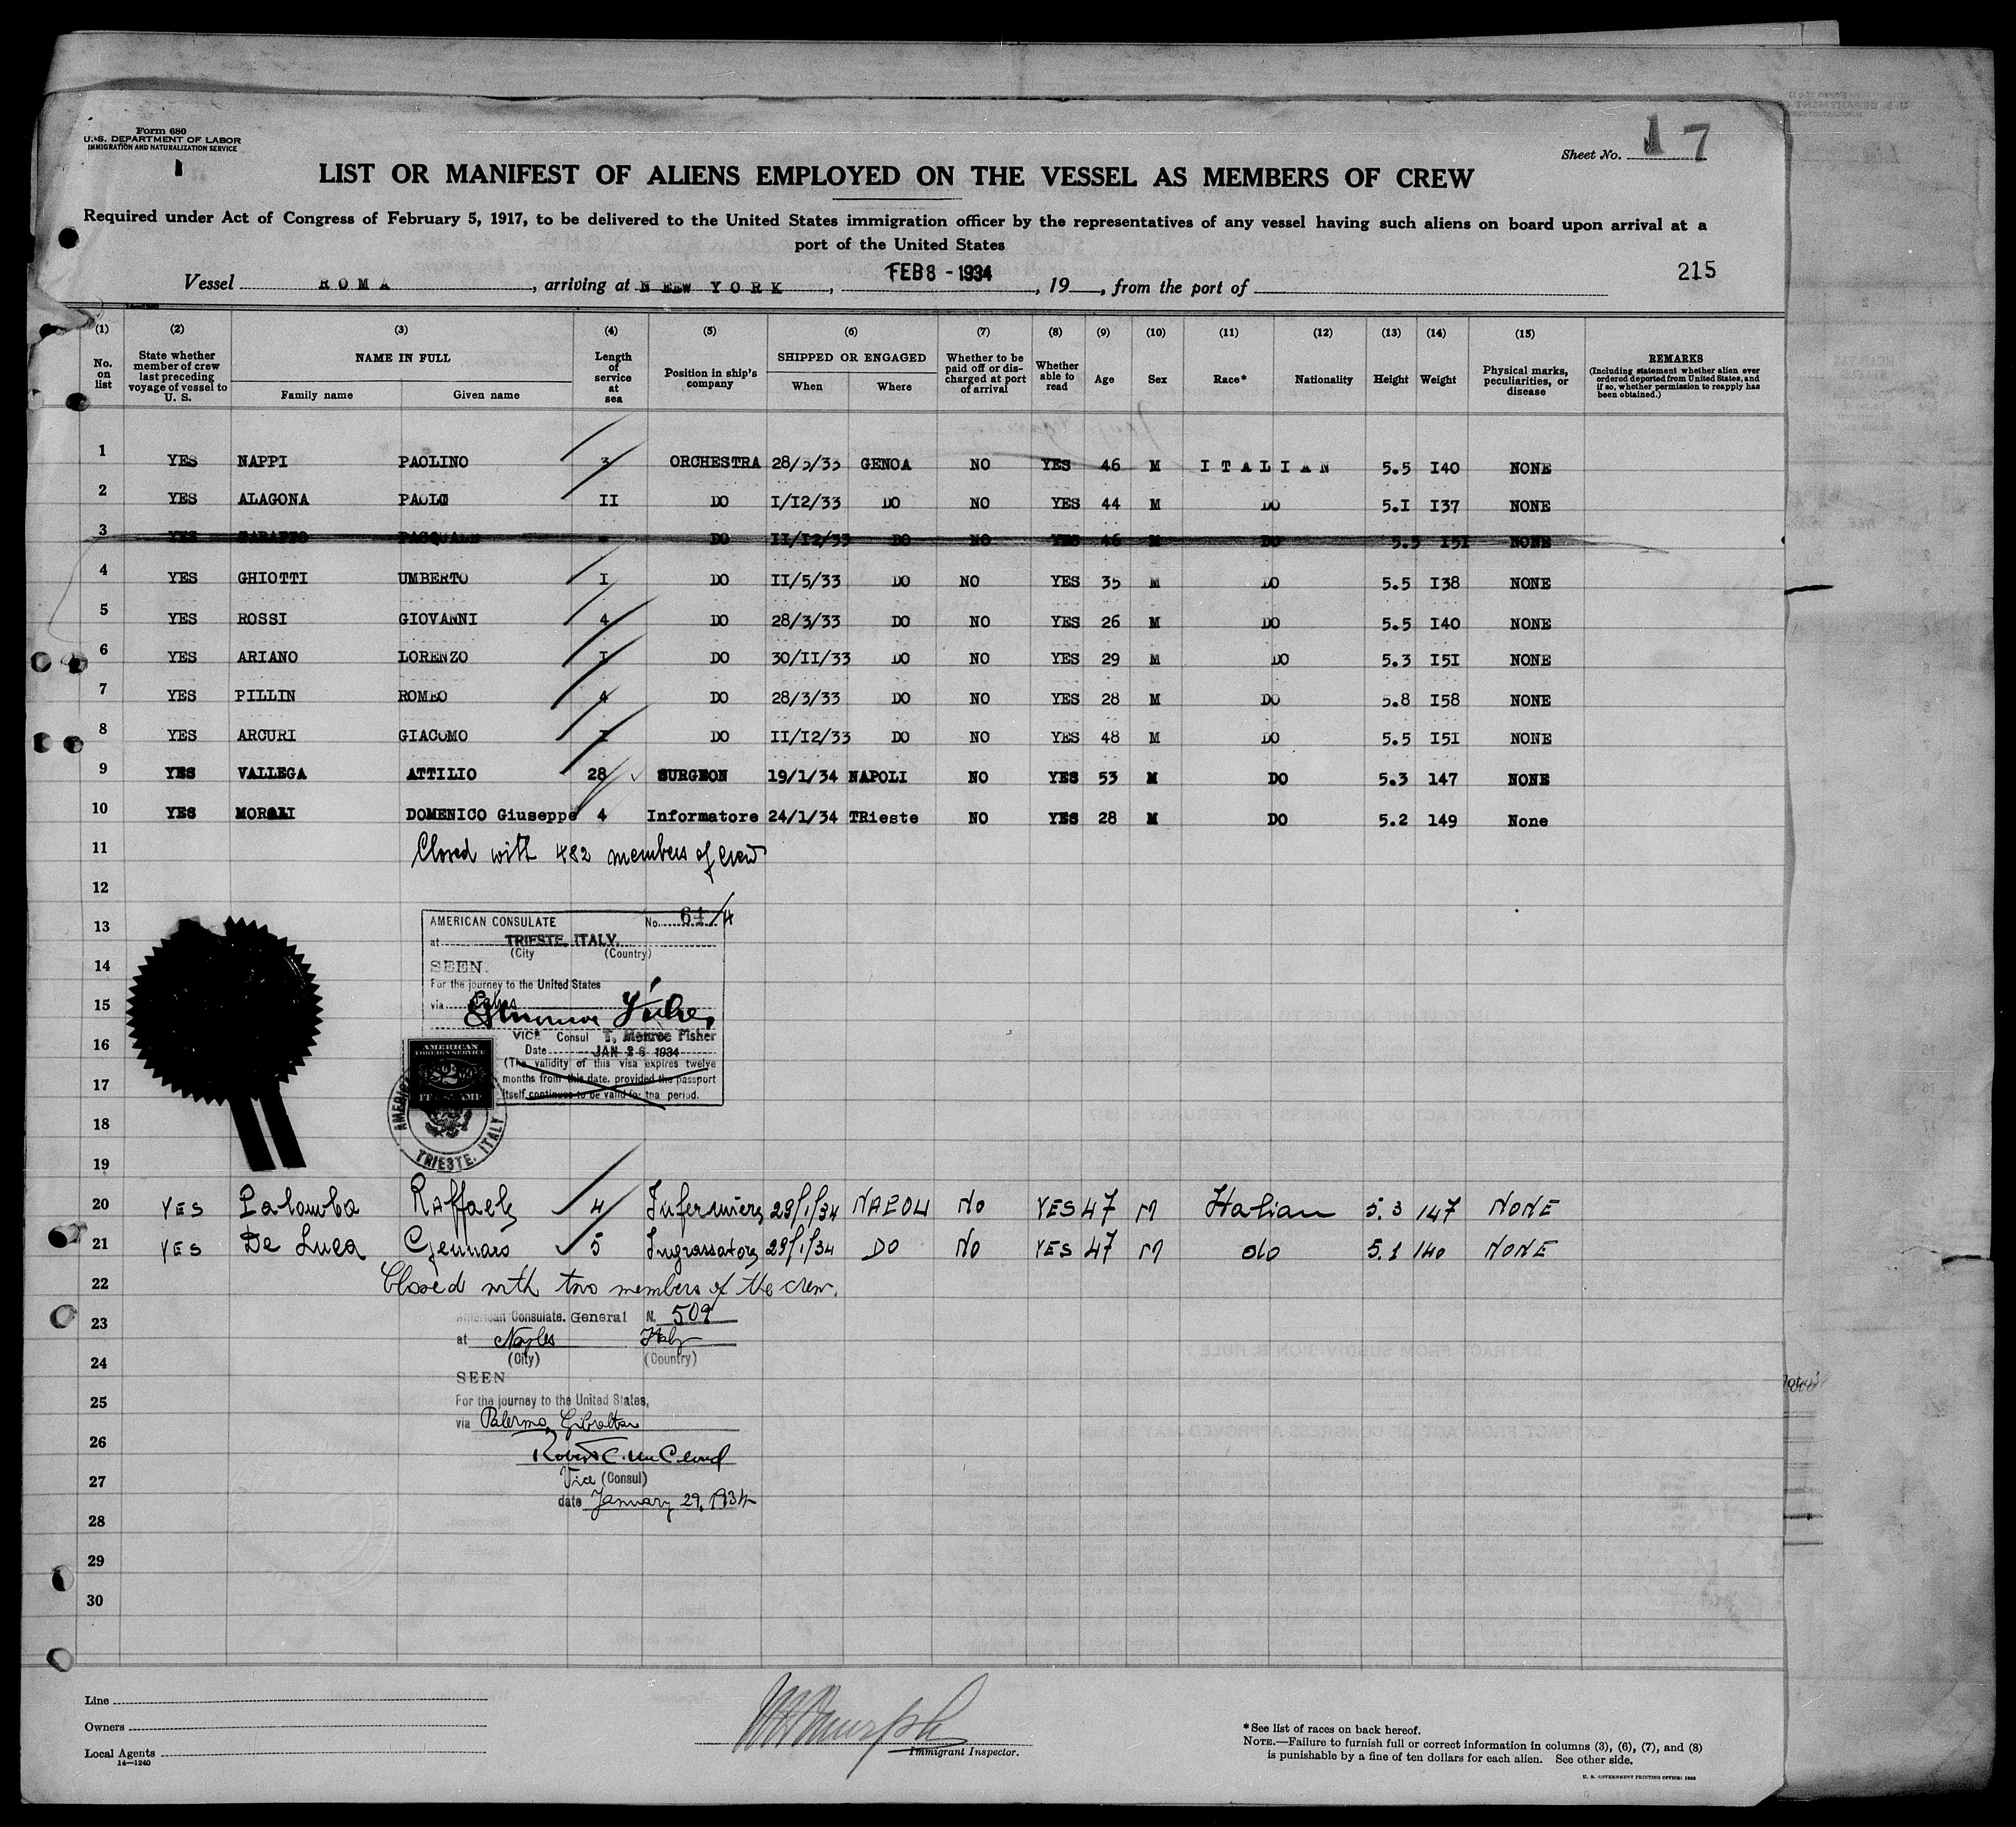 Form 680
U. S. DEPARTMENT OF LABOR
IMMIGRATION AND NATURALIZATION SERVICE
Sheet No. 17
LIST OR MANIFEST OF ALIENS EMPLOYED ON THE VESSEL AS MEMBERS OF CREW
Required under Act of Congress of February 5, 1917, to be delivered to the United States immigration officer by the representatives of any vessel having such aliens on board upon arrival at a
port of the United States
Vessel ROMA, arriving at NEW YORK, FEB 8 - 1934, 19, from the port of 215
(1) (2) (3) (4) (5) (6) (7) (8) (9) (10) (11) (12) (13) (14) (15)
No. on list
State whether member of crew last preceding voyage of vessel to U. S.
NAME IN FULL
Family name Given name
Length of service at sea
Position in ship's company
SHIPPED OR ENGAGED
When Where
Whether to be paid off or discharged at port of arrival
Whether able to read
Age
Sex
Race*
Nationality
Height
Weight
Physical marks, peculiarities, or disease
REMARKS
(Including statement whether alien ever ordered deported from United States, and if so, whether permission to reapply has been obtained.)
1 YES NAPPI PAOLINO 3 ORCHESTRA 28/3/33 GENOA NO YES 46 M ITALIAN 5.5 I40 NONE
2 YES ALAGONA PAOLO II DO I/I2/33 DO NO YES 44 M DO 5.I I37 NONE
3 YES PASQUALE DO II/I2/33 DO NO YES 46 M DO 5.5 I5I NONE
4 YES GHIOTTI UMBERTO I DO II/5/33 DO NO YES 35 M DO 5.5 I38 NONE
5 YES ROSSI GIOVANNI 4 DO 28/3/33 DO NO YES 26 M DO 5.5 I40 NONE
6 YES ARIANO LORENZO I DO 30/II/33 DO NO YES 29 M DO 5.3 I5I NONE
7 YES PILLIN ROMEO 4 DO 28/3/33 DO NO YES 28 M DO 5.8 I58 NONE
8 YES ARCURI GIACOMO I DO II/I2/33 DO NO YES 48 M DO 5.5 I5I NONE
9 YES VALLEGA ATTILIO 28 SURGEON 19/1/34 NAPOLI NO YES 53 M DO 5.3 147 NONE
10 YES MORALI DOMENICO Giuseppe 4 Informatore 24/1/34 TRieste NO YES 28 M DO 5.2 149 None
11 Closed with 482 members of crew
12
13
14
15
16
17
18
19
AMERICAN CONSULATE No. 64/4
at TRIESTE, ITALY.
(City) (Country)
SEEN.
For the journey to the United States
via
VICE Consul T. Monroe Fisher
Date JAN 26 1934
(The validity of this visa expires twelve
months from this date, provided the passport
itself continues to be valid for that period.
AMERICAN
FOREIGN SERVICE
$2.00
FEE STAMP
TRIESTE, ITALY
20 YES Palomba Raffaele 4 Infermiere 29/1/34 NAPOLI No YES 47 M Italian 5.3 147 NONE
21 YES De Luca Gennaro 5 Ingrassatore 29/1/34 DO No YES 47 M do 5.1 140 NONE
22 Closed with two members of the crew.
23
24
25
26
27
28
29
30
American Consulate. General N. 509
at Naples Italy
(City) (Country)
SEEN
For the journey to the United States,
via Palermo, Gibraltar
Robert C. McCloud
Vice (Consul)
date January 29, 1934
Line
Owners
Local Agents
14—1240
Immigrant Inspector.
*See list of races on back hereof.
NOTE.—Failure to furnish full or correct information in columns (3), (6), (7), and (8)
is punishable by a fine of ten dollars for each alien. See other side.
U. S. GOVERNMENT PRINTING OFFICE: 1933